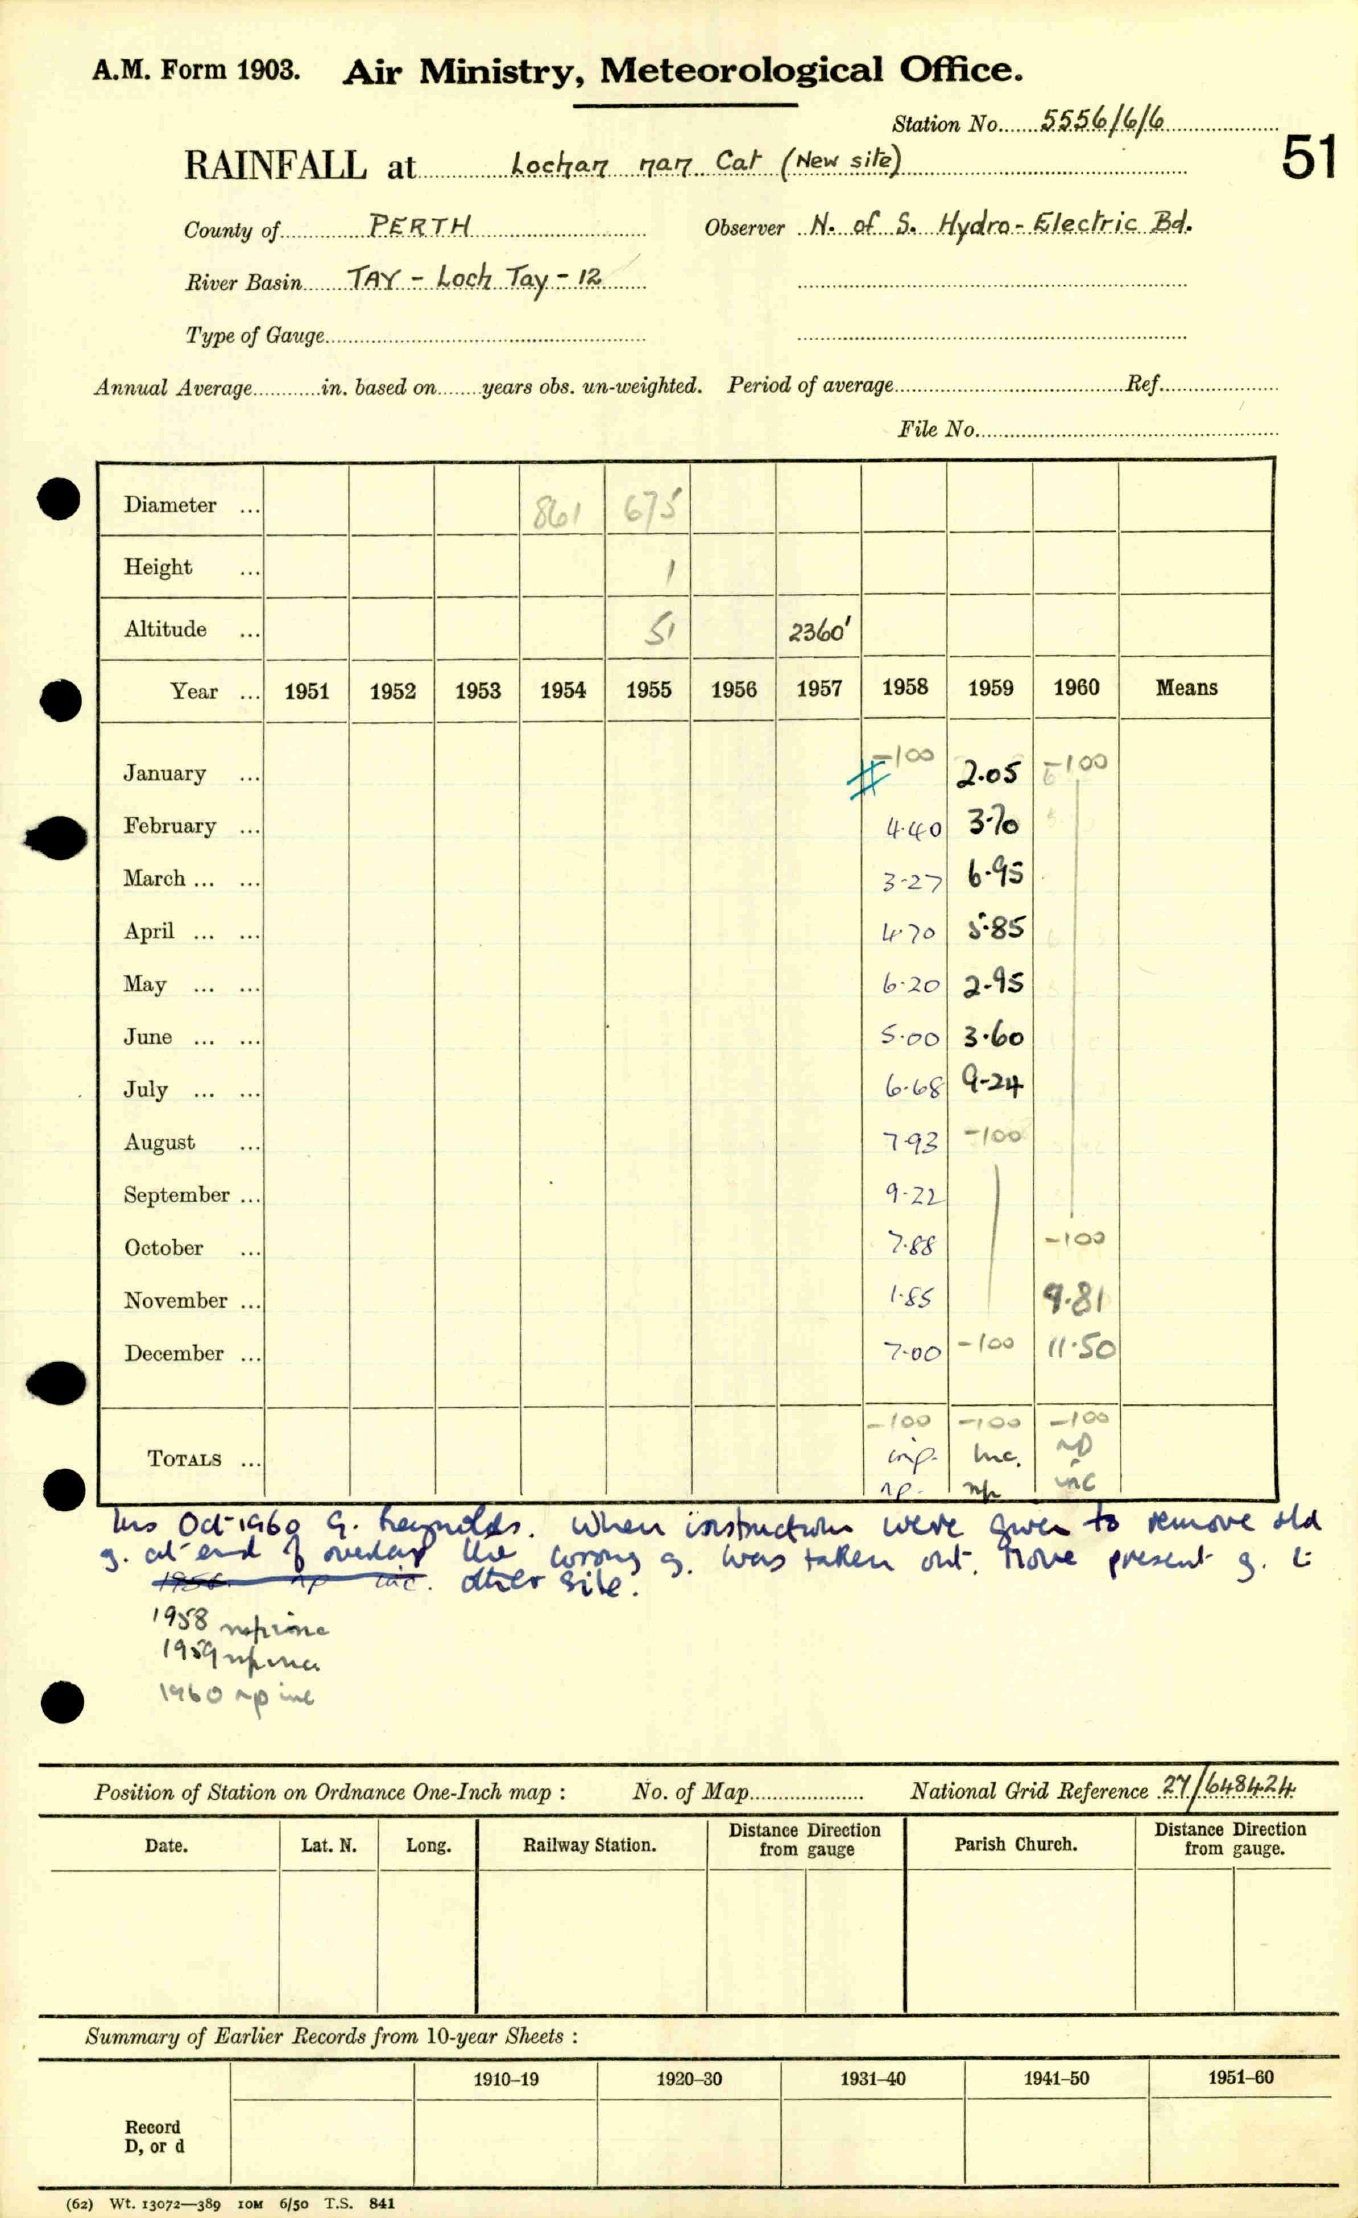 A.M. Form 1903. Air Ministry, Meteorological Office.
Station No. 5556/6/6
51
RAINFALL at Lochan nan Cat (New site)
County of PERTH Observer N. of S. Hydro-Electric Bd.
River Basin TAY - Loch Tay - 12
Type of Gauge
Annual Average in. based on years obs. un-weighted. Period of average Ref.
File No.
Diameter ... 861 675
Height ... 1
Altitude ... 51 2360'
Year ... 1951 1952 1953 1954 1955 1956 1957 1958 1959 1960 Means
January ... -100 2.05 -100
February ... 4.40 3.70
March ... ... 3.27 6.95
April ... ... 4.70 5.85
May ... ... 6.20 2.95
June ... ... 5.00 3.60
July ... ... 6.68 9.24
August ... 7.93 -100
September ... 9.22
October ... 7.88 -100
November ... 1.85 9.81
December ... 7.00 -100 11.50
-100 -100 -100
TOTALS ... inc. np
np. np inc
Ins Oct 1960 G. Reynolds. When instructions were given to remove old
g. at end of overlap the wrong g. was taken out. Move present g. to
1958 np inc. other site.
1958 np inc
1959 np inc
1960 np inc
Position of Station on Ordnance One-Inch map : No. of Map National Grid Reference 27/648424
Date. Lat. N. Long. Railway Station. Distance Direction from gauge Parish Church. Distance Direction from gauge.
Summary of Earlier Records from 10-year Sheets :
1910–19 1920–30 1931–40 1941–50 1951–60
Record
D, or d
(62) Wt. 13072—389 10M 6/50 T.S. 841